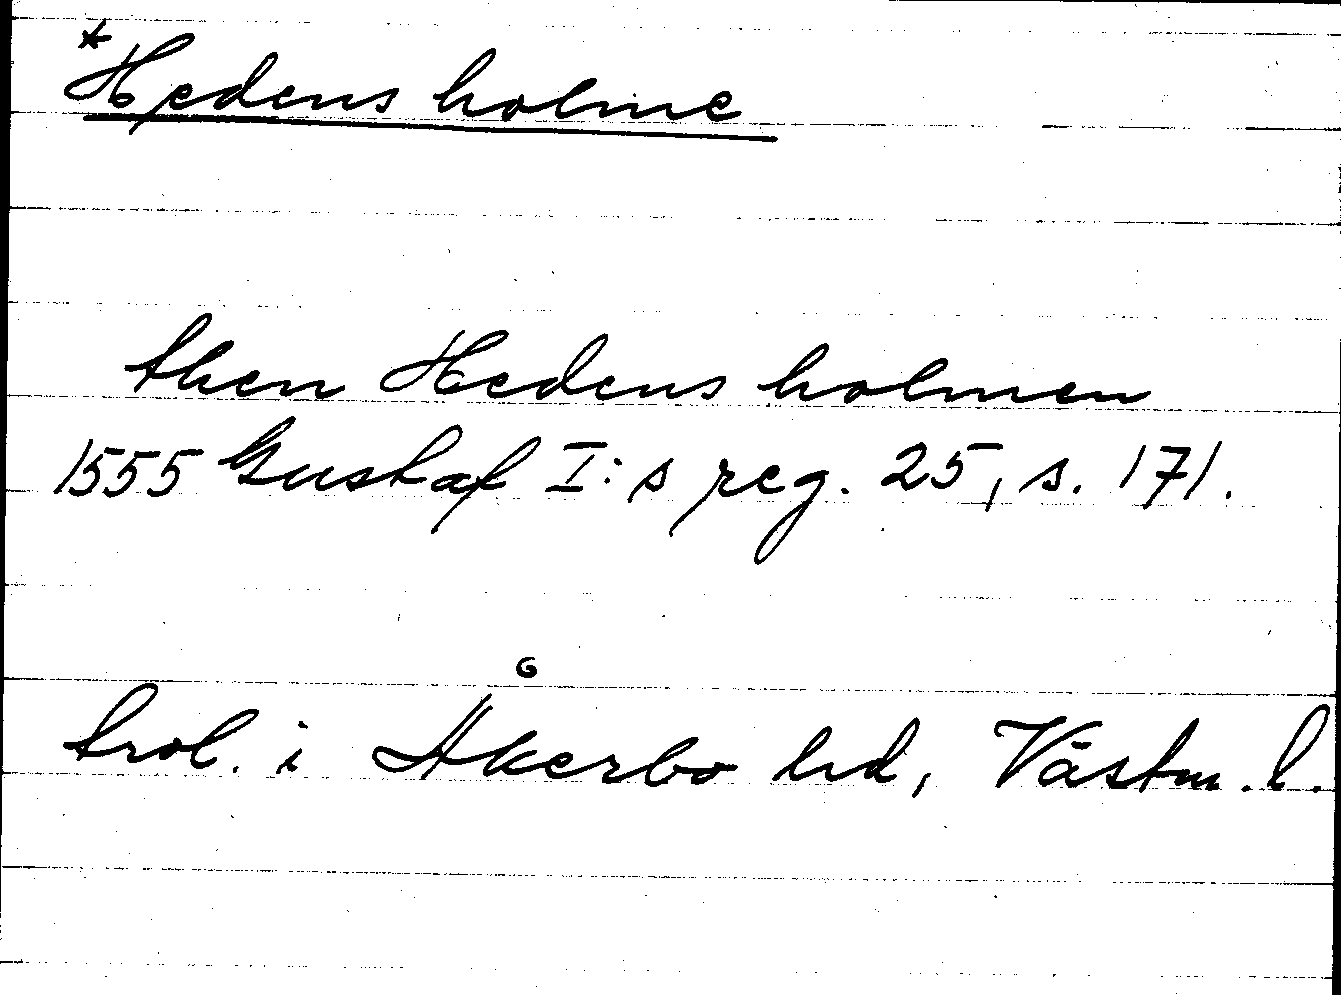 *Hedens holme
then Hedens holmen
1555 Gustaf I:s reg. 25, s. 171.
trol. i Åkerbo hd, Västm. l.